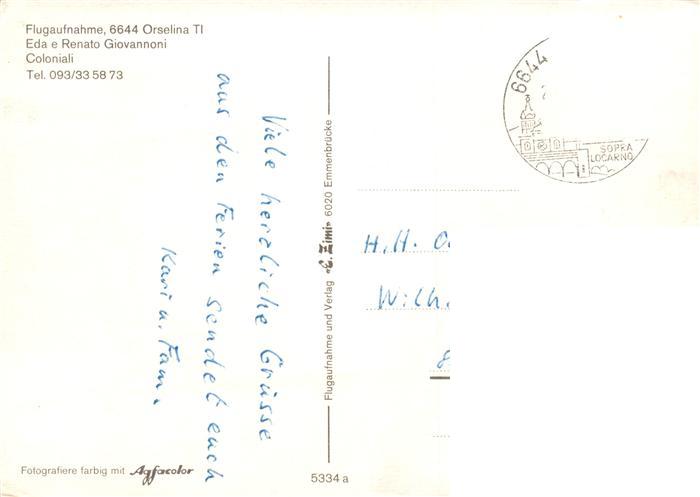 Flugaufnahme, 6644 Orselina TI
Eda e Renato Giovannoni
Coloniali
Tel. 093/33 58 73
Viele herzliche Grüsse
aus den Ferien sendet euch
Kari u. Fam.
Flugaufnahme und Verlag «E. Zimi» 6020 Emmenbrücke
6644
SOPRA
LOCARNO
H.H.
Wilh.
8
Fotografiere farbig mit Agfacolor
5334 a